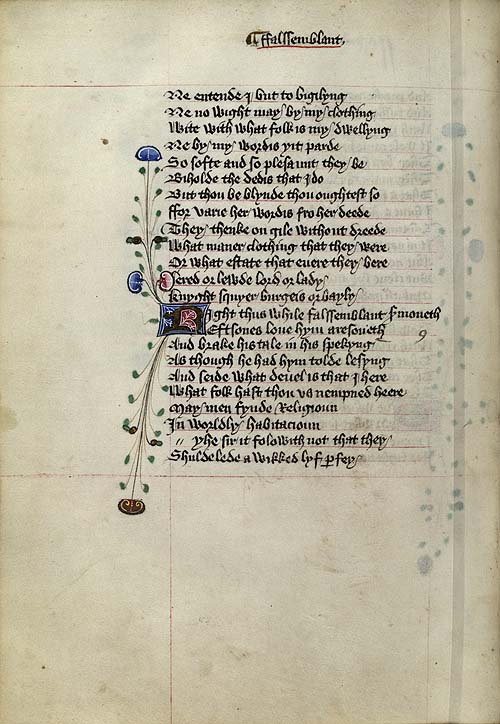 ffalssemblant
Ne entende I but to bigilyng
Ne no wight may by my clothing
Wite with what folk is my dwellyng
Ne by my wordis yit parde
So softe and so plesaunt they be
Biholde the dedis that I do
But thou be blynde thou oughtest so
ffor varie her wordis fro her deede
They thenke on gile without dreede
What maner clothing that they were
Or what estate that euere they bere
lered or lewde lord or lady
Knyght squyer burgeis or bayly
Right thus while falssemblant sermoneth
Eftsones loue hym aresoneth
And brake his tale in his spekyng
As though he had hym tolde lesyng
And seide what deuel is that I here
What folk hast thou vs nempned heere
May men fynde Religioun
In worldly habitacioun
yhe sir it folowith not that they
Shulde lede a wikked lyf parfey